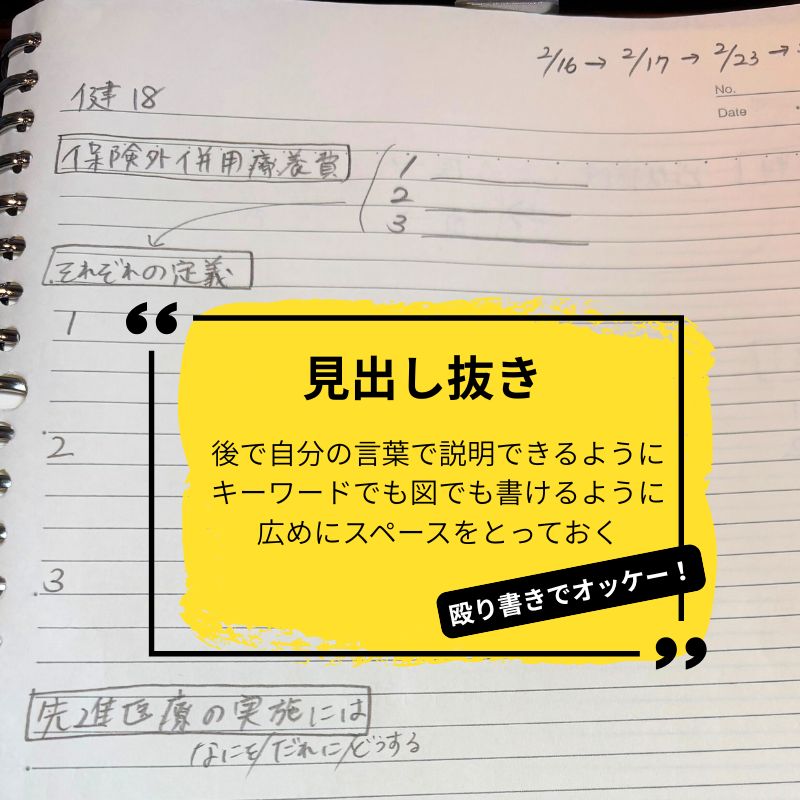 2/16 → 2/17 → 2/23 →
No.
Date
健18
保険外併用療養費
1
2
3
それぞれの定義
1
“
見出し抜き
後で自分の言葉で説明できるように
キーワードでも図でも書けるように
広めにスペースをとっておく
殴り書きでオッケー！
”
2
3
先進医療の実施には
なにを/だれに/どうする